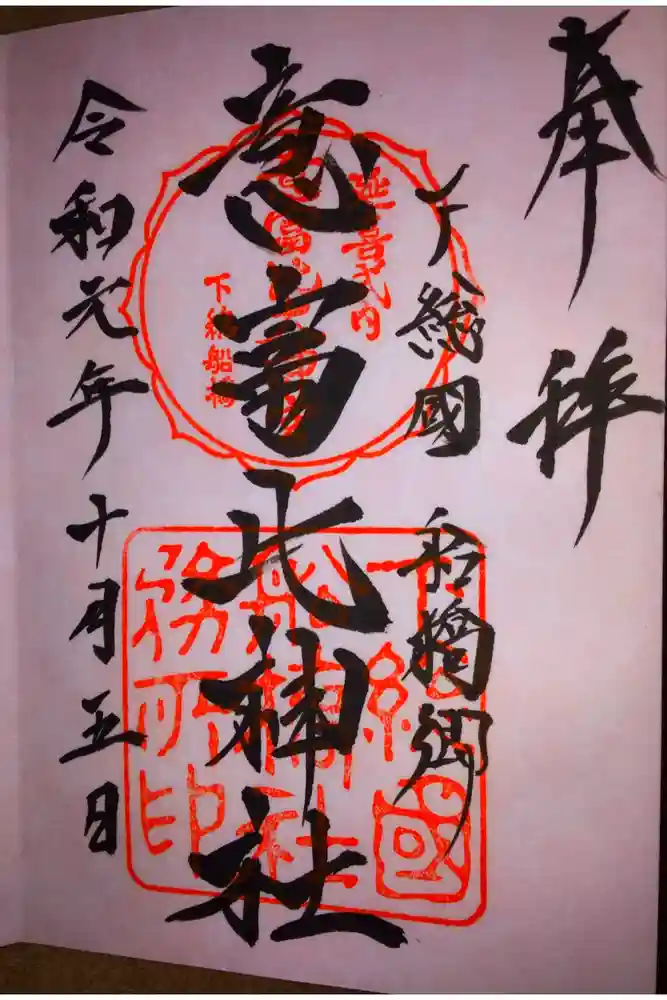 奉拝
下総國 船橋郷
意富比神社
令和元年十月五日
延喜式内
下総船橋
下総國
船橋神社
務所印